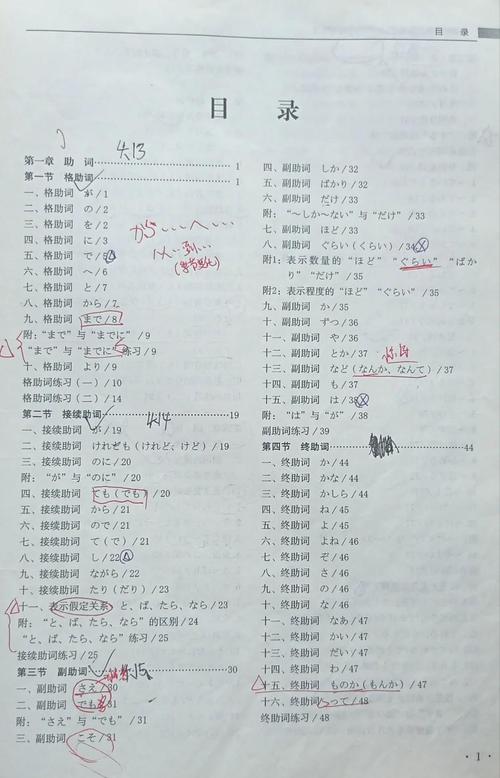 目 录
目 录
4.13
第一章 助 词 1
第一节 格助词 1
一、格助词 が / 1
二、格助词 の / 2
三、格助词 を / 2
四、格助词 に / 3
五、格助词 で / 5
六、格助词 へ / 6
七、格助词 と / 7
八、格助词 から / 7
九、格助词 まで / 8
附:“まで”与“までに” / 9
“まで”与“までに”练习 / 9
十、格助词 より / 9
格助词练习(一) / 10
格助词练习(二) / 14
第二节 接续助词 19
4.14
一、接续助词 が / 19
二、接续助词 けれども(けれど、けど) / 19
三、接续助词 のに / 20
附:“が”与“のに” / 20
四、接续助词 ても(でも) / 20
五、接续助词 から / 21
六、接续助词 ので / 21
七、接续助词 て(で) / 21
八、接续助词 し / 22
九、接续助词 ながら / 22
十、接续助词 たり(だり) / 23
十一、表示假定关系 と、ば、たら、なら / 23
附:“と、ば、たら、なら”的区别 / 24
“と、ば、たら、なら”练习 / 25
接续助词练习 / 25
第三节 副助词 30
一、副助词 さえ / 30
二、副助词 でも / 31
附:“さえ”与“でも” / 31
三、副助词 こそ / 31
から……へ……
从……到……
四、副助词 しか / 32
五、副助词 ばかり / 32
六、副助词 だけ / 33
附:“～しか～ない”与“だけ” / 33
七、副助词 ほど / 33
八、副助词 ぐらい(くらい) / 34
附1:表示数量的“ほど”“ぐらい”“ばか
り”“だけ” / 35
附2:表示程度的“ほど”“ぐらい” / 35
九、副助词 か / 35
十、副助词 ずつ / 36
十一、副助词 や / 36
十二、副助词 とか / 37
十三、副助词 など(なんか、なんて) / 37
十四、副助词 も / 37
十五、副助词 は / 38
附:“は”与“が” / 38
副助词练习 / 39
第四节 终助词 44
一、终助词 か / 44
二、终助词 かな / 44
三、终助词 かしら / 44
四、终助词 ね / 45
五、终助词 よ / 45
六、终助词 よね / 46
七、终助词 ぞ / 46
八、终助词 さ / 46
九、终助词 の / 46
十、终助词 な / 46
十一、终助词 なあ / 47
十二、终助词 かい / 47
十三、终助词 だい / 47
十四、终助词 わ / 47
十五、终助词 ものか(もんか) / 47
十六、终助词 って / 48
终助词练习 / 48
· 1 ·